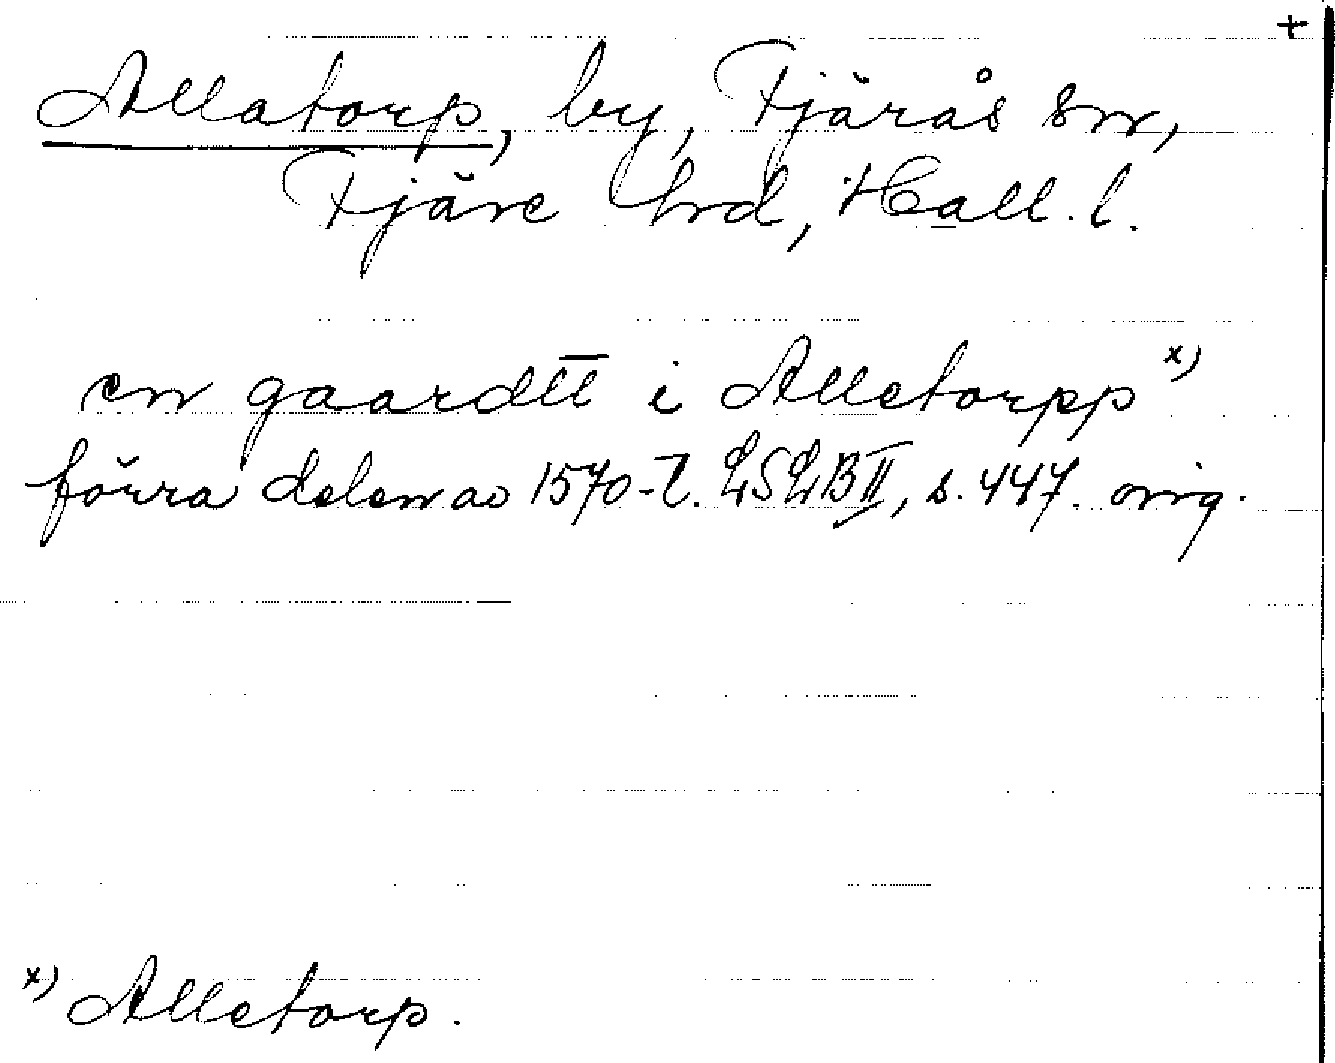 +
Allatorp, by, Fjärås sn,
Fjäre hrd, Hall. l.
en gaardtt i Alletorpp x)
förra delen av 1570-t. LSLB II, s. 447. orig.
x) Alletorp.